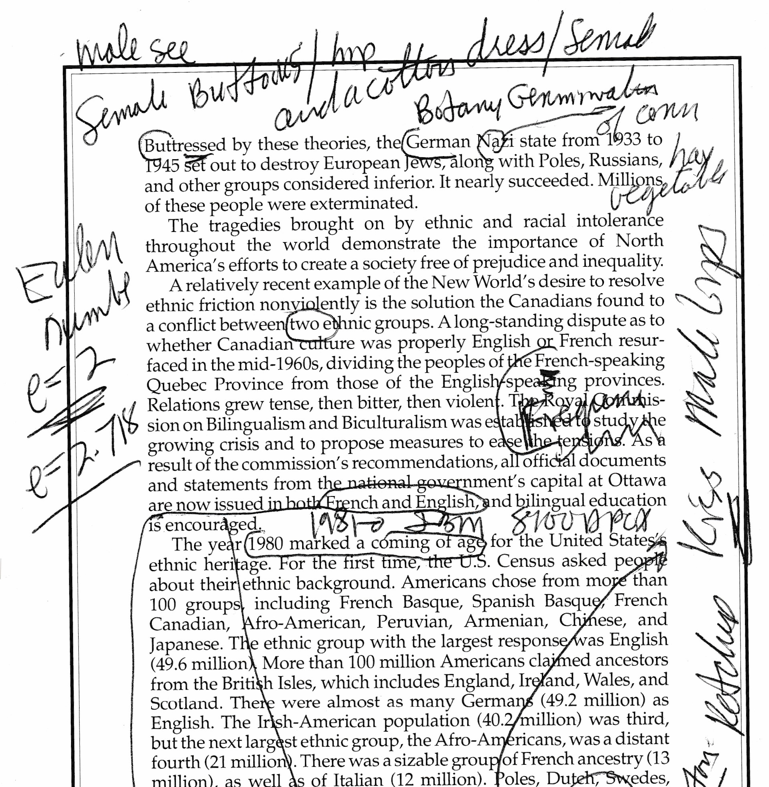 male see
female Buttocks/hip
and a cotton dress/female
Botany Germination
of corn
hay
vegetables
Buttressed by these theories, the German Nazi state from 1933 to
1945 set out to destroy European Jews, along with Poles, Russians,
and other groups considered inferior. It nearly succeeded. Millions
of these people were exterminated.
The tragedies brought on by ethnic and racial intolerance
throughout the world demonstrate the importance of North
America's efforts to create a society free of prejudice and inequality.
A relatively recent example of the New World's desire to resolve
ethnic friction nonviolently is the solution the Canadians found to
a conflict between two ethnic groups. A long-standing dispute as to
whether Canadian culture was properly English or French resur-
faced in the mid-1960s, dividing the peoples of the French-speaking
Quebec Province from those of the English-speaking provinces.
Relations grew tense, then bitter, then violent. The Royal Commis-
sion on Bilingualism and Biculturalism was established to study the
growing crisis and to propose measures to ease the tensions. As a
result of the commission's recommendations, all official documents
and statements from the national government's capital at Ottawa
are now issued in both French and English, and bilingual education
is encouraged.
1981-0 IBM 8100 DPCX
The year 1980 marked a coming of age for the United States's
ethnic heritage. For the first time, the U.S. Census asked people
about their ethnic background. Americans chose from more than
100 groups, including French Basque, Spanish Basque, French
Canadian, Afro-American, Peruvian, Armenian, Chinese, and
Japanese. The ethnic group with the largest response was English
(49.6 million). More than 100 million Americans claimed ancestors
from the British Isles, which includes England, Ireland, Wales, and
Scotland. There were almost as many Germans (49.2 million) as
English. The Irish-American population (40.2 million) was third,
but the next largest ethnic group, the Afro-Americans, was a distant
fourth (21 million). There was a sizable group of French ancestry (13
million), as well as of Italian (12 million). Poles, Dutch, Swedes,
Eulen
numbe
e=2
e=2.718
Ketchup Kiss Male lips